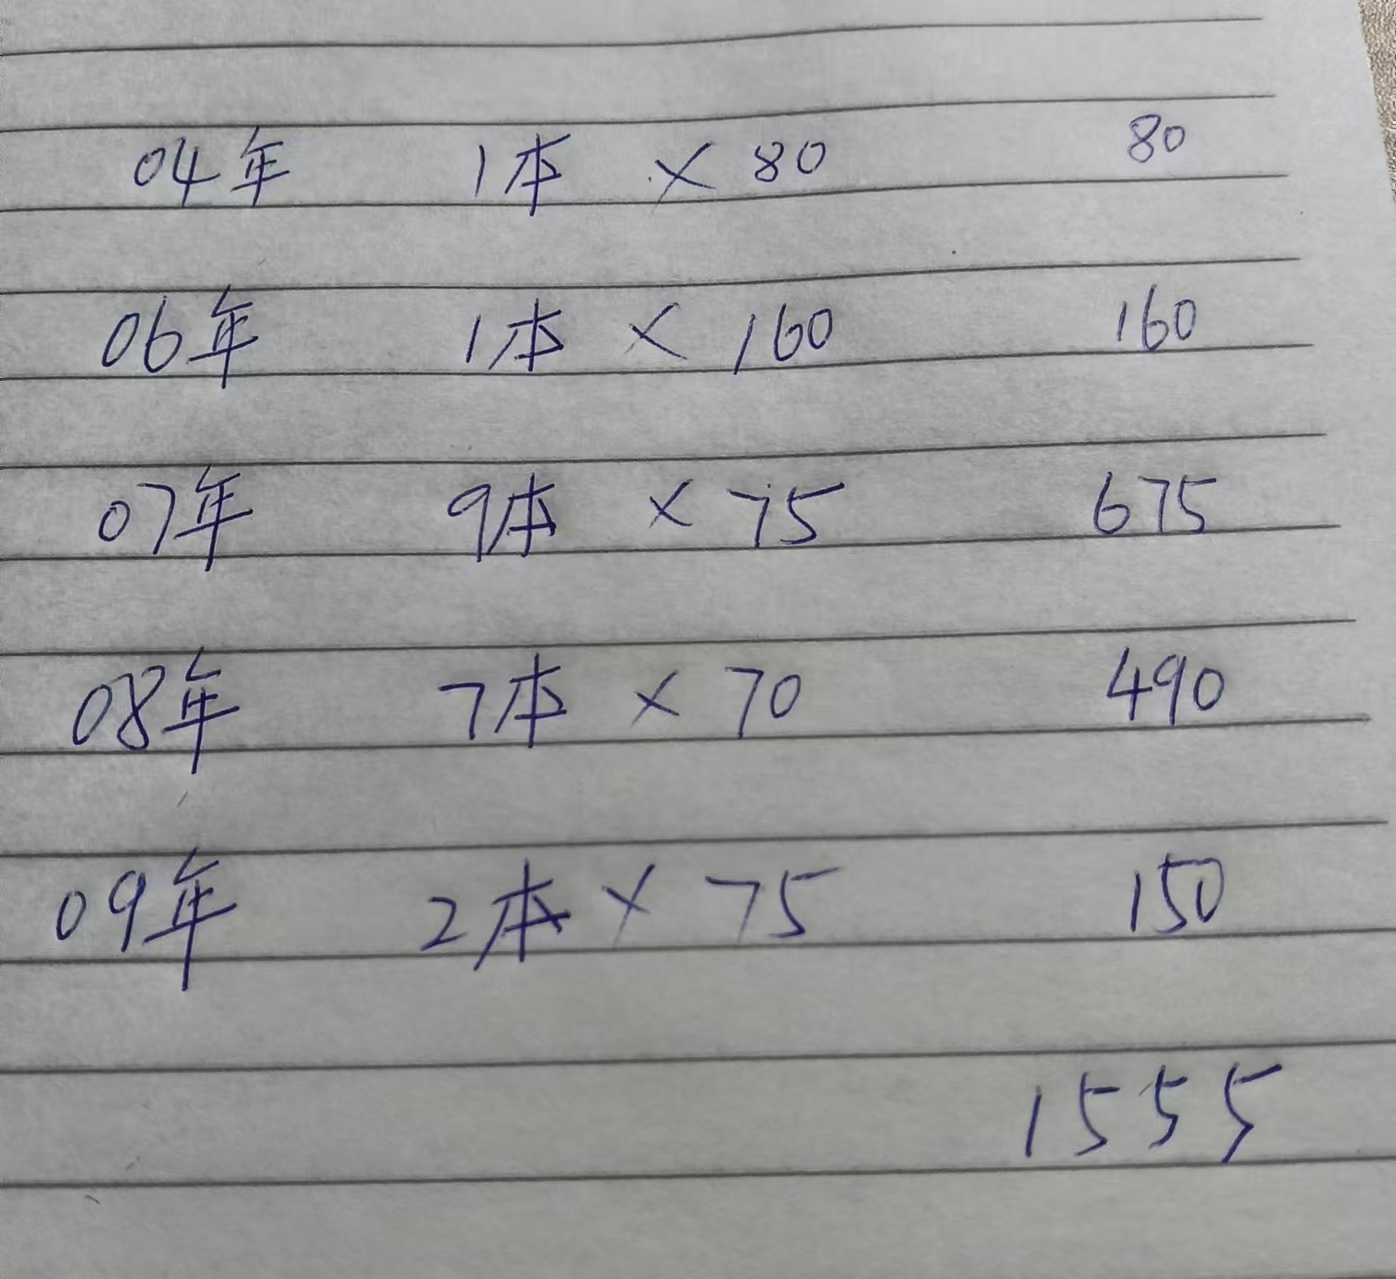 04年 1本 × 80 80
06年 1本 × 160 160
07年 9本 × 75 675
08年 7本 × 70 490
09年 2本 × 75 150
1555